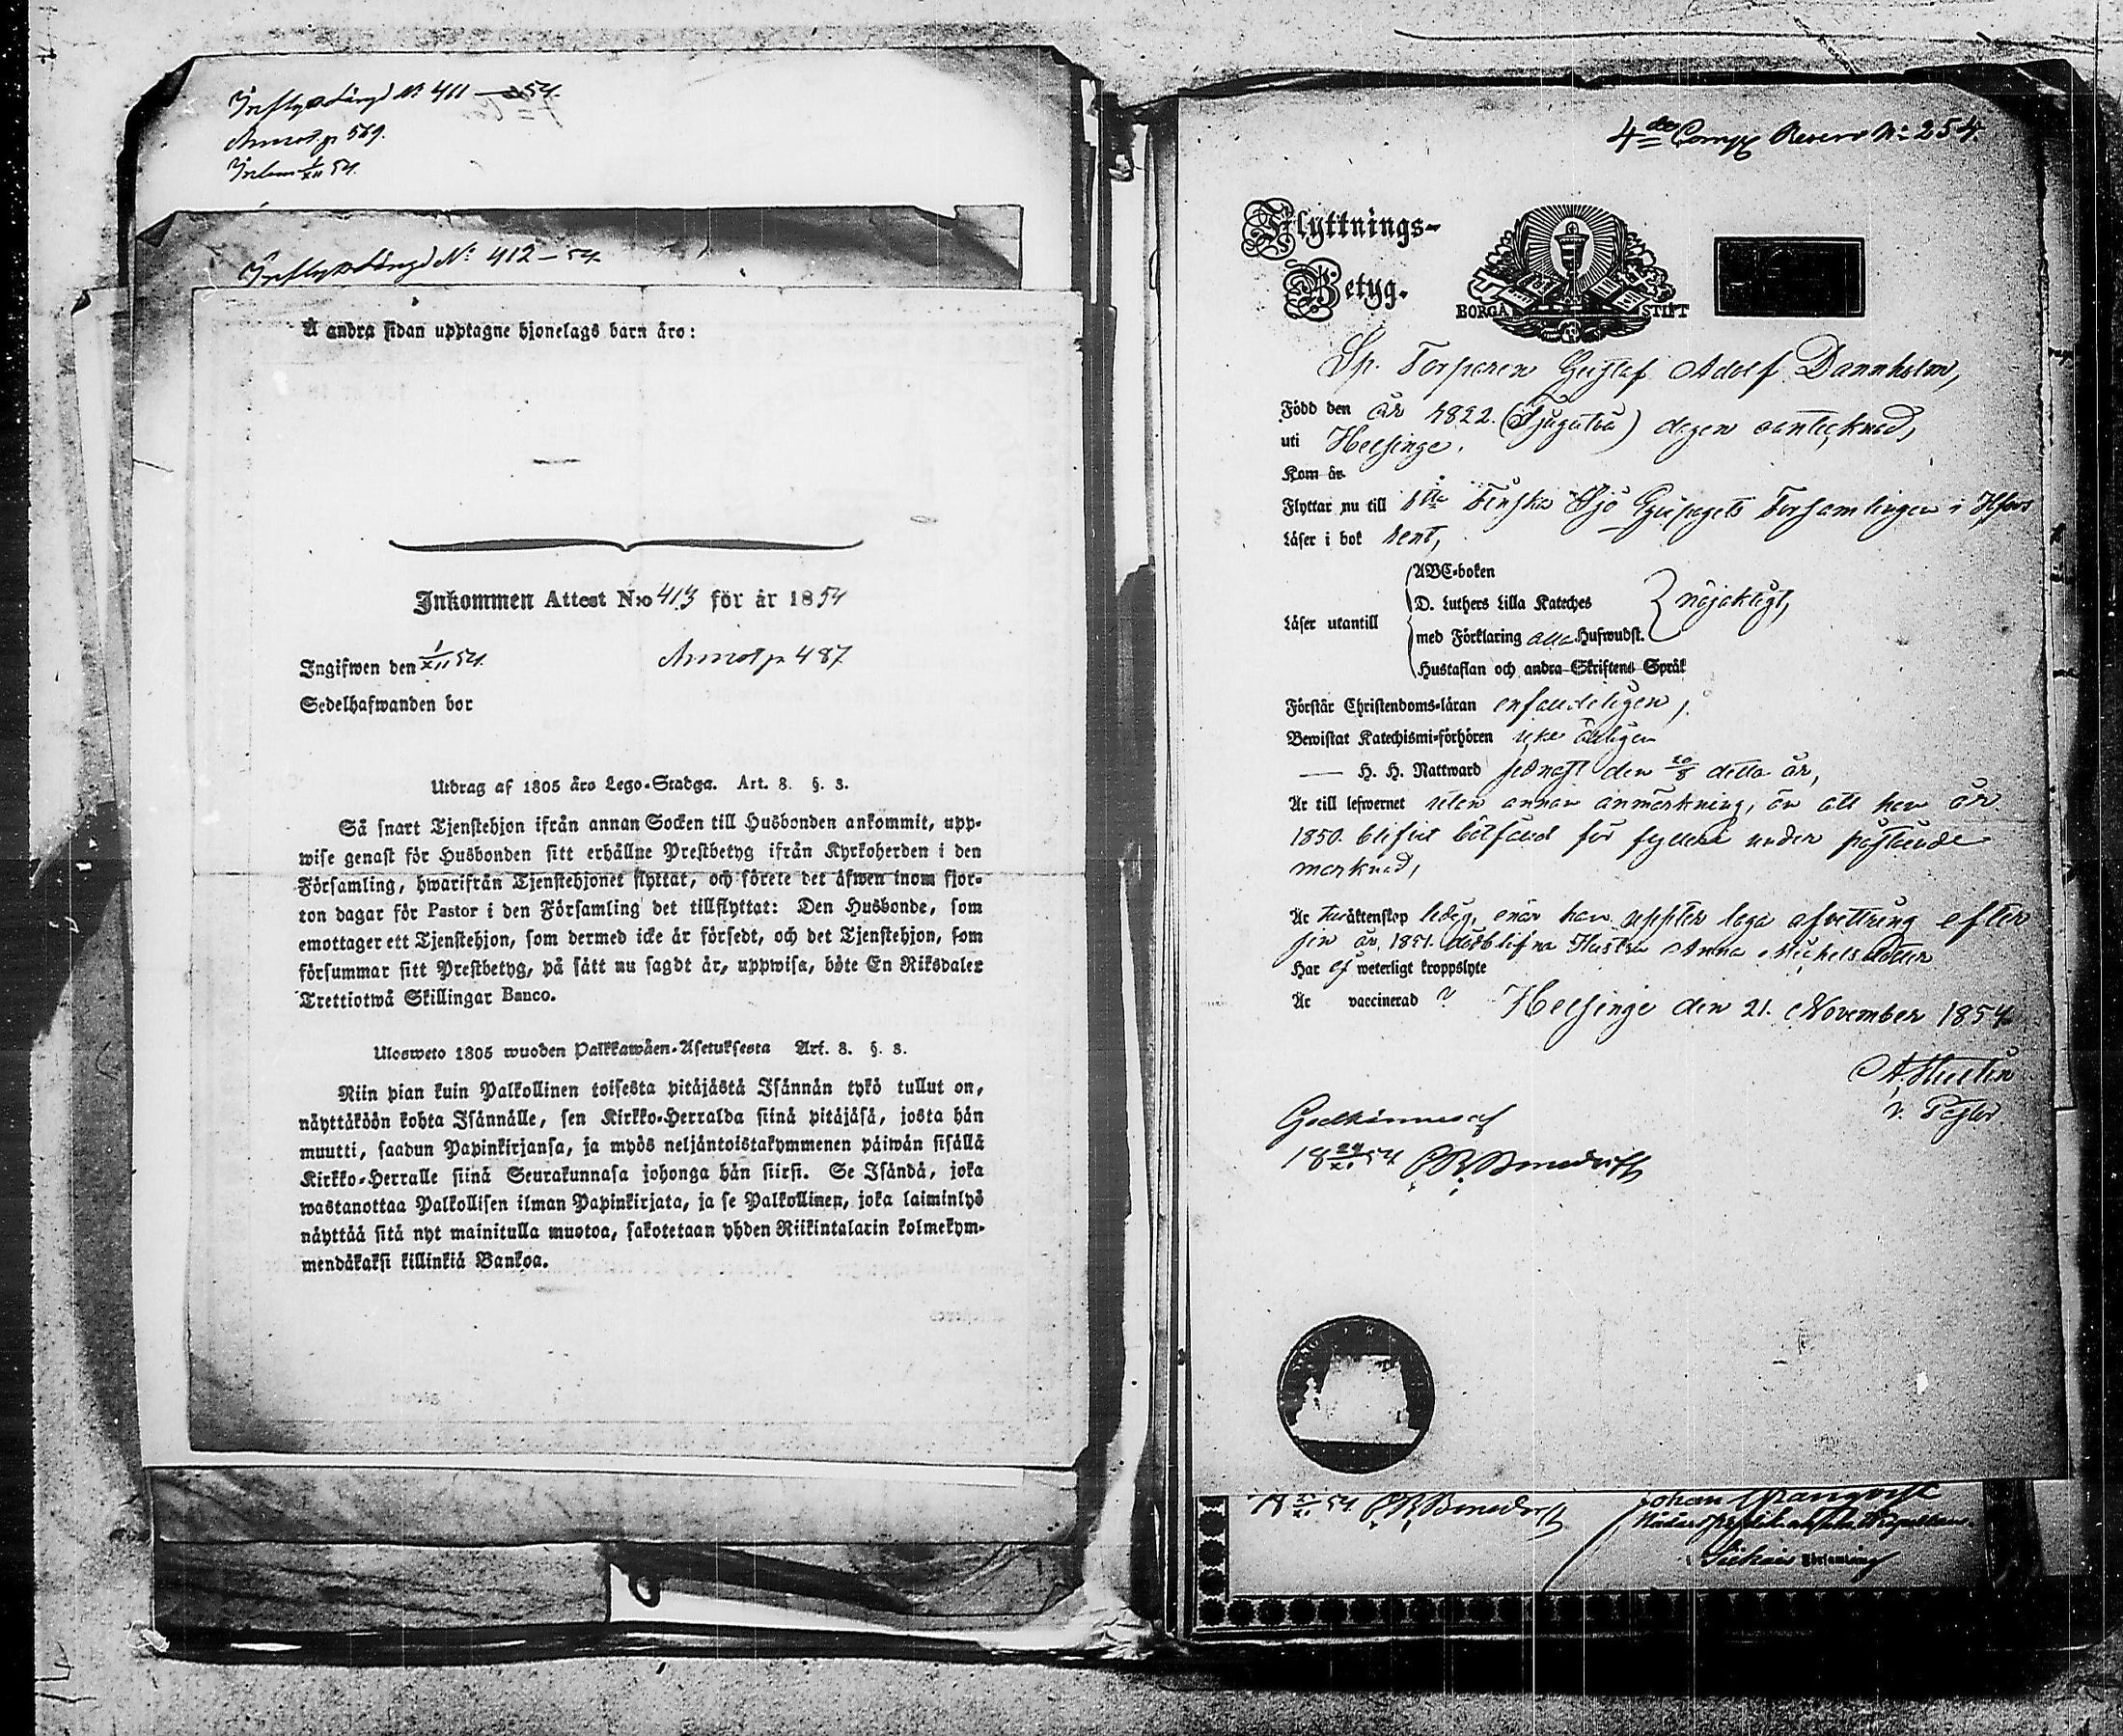 Inflyttslängd N: 411 — 54.
Annot. p. 569.
Inkom 1/XII 54.
Inflyttslängd N: 412 — 54
Å andra sidan upptagne hjonelags barn äro:
Inkommen Attest N:o 413 för år 1854
Ingifwen den 1/XII 54. Annot p 487
Sedelhafwanden bor
Utdrag af 1805 års Lego-Stadga. Art. 8. §. 3.
Så snart Tjenstehjon ifrån annan Socken till Husbonden ankommit, upp-
wise genast för Husbonden sitt erhållne Prestbetyg ifrån Kyrkoherden i den
Församling, hwarifrån Tjenstehjonet flyttat, och förete det äfwen inom fjor-
ton dagar för Pastor i den Församling det tillflyttat: Den Husbonde, som
emottager ett Tjenstehjon, som dermed icke är försedt, och det Tjenstehjon, som
försummar sitt Prestbetyg, på sätt nu sagdt är, uppwisa, böte En Riksdaler
Trettiotwå Skillingar Banco.
Ulosweto 1805 wuoden Palkkawäen-Asetuksesta Art. 8. §. 3.
Niin pian kuin Palkollinen toisesta pitäjästä Isännän tykö tullut on,
näyttäköön kohta Isännälle, sen Kirkko-Herralda siinä pitäjäsä, josta hän
muutti, saadun Papinkirjansa, ja myös neljäntoistakymmenen päiwän sisällä
Kirkko-Herralle siinä Seurakunnasa johonga hän siirsi. Se Isändä, joka
wastanottaa Palkollisen ilman Papinkirjata, ja se Palkollinen, joka laiminlyö
näyttää sitä nyt mainitulla muotoa, sakotetaan yhden Riikintalarin kolmekym-
mendäkaksi killinkiä Bankoa.
4de Comp Reserv N: 254.
Flyttnings-
Betyg.
BORGÅ STIFT
Sp. Torparen Gustaf Adolf Dannholm,
Född den år 1822. (Tjugutvå) dagen oantecknad,
uti Helsinge.
Kom år
Flyttar nu till 1sta Finska Sjö Equipagets Församlingen i Hfors
Läser i bok rent,
ABC-boken
D. Luthers Lilla Kateches
Läser utantill med Förklaring alla Hufwudst. nöjaktigt,
Hustaflan och andra Skriftens Språk
Förstår Christendoms-läran enfaldeligen,
Bewistat Katechismi-förhören icke årligen
— H. H. Nattward sednast den 20/8 detta år,
Är till lefwernet utan annan anmärkning, än att han år
1850. blifvit bötfäld för fylleri under påstående
marknad,
Är till äktenskap ledig, enär han uppter laga afvittring efter
sin år 1851. dödblifna Hustru Anna Michelsdotter
Har ej weterligt kroppslyte
Är vaccinerad ? Helsinge den 21. November 1854.
v. Pastor.
Godkännes af
18 54
54.
Johan
Församling